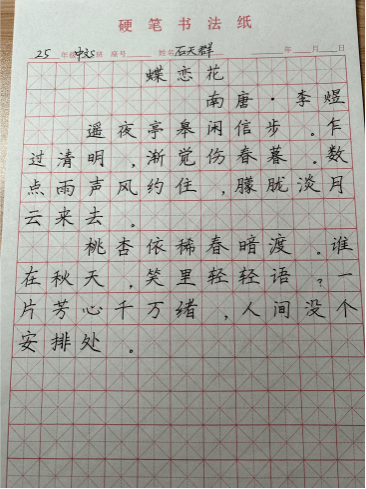 硬笔书法纸
25 年级 中文5 班 座号 姓名 石天群 年 月 日
蝶恋花
南唐·李煜
遥夜亭皋闲信步。乍
过清明,渐觉伤春暮。数
点雨声风约住,朦胧淡月
云来去。
桃杏依稀春暗渡。谁
在秋天,笑里轻轻语?一
片芳心千万绪,人间没个
安排处。